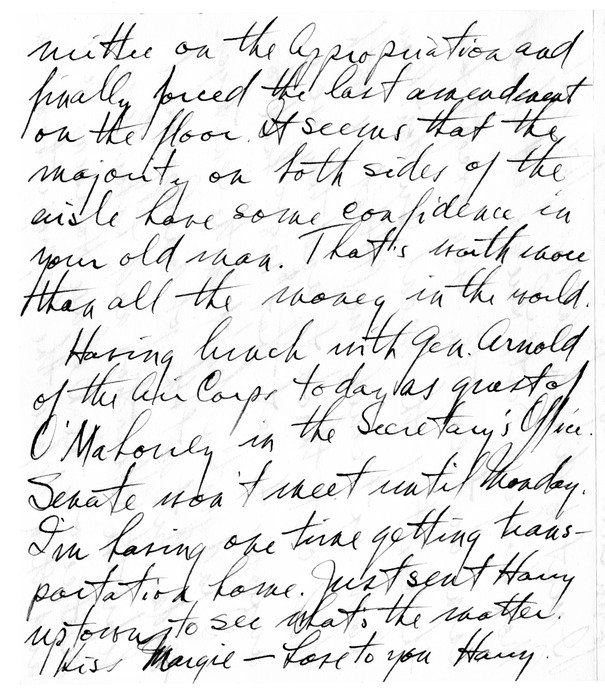 mittee on the Appropriation and
finally forced the last amendment
on the floor. It seems that the
majority on both sides of the
aisle have some confidence in
your old man. That's worth more
than all the money in the world.
Having lunch with Gen. Arnold
of the Air Corps today as guest of
O'Mahoney in the Secretary's Office.
Senate won't meet until Monday.
I'm having one time getting trans-
portation home. Just sent Harry
uptown to see what's the matter.
Kiss Margie - Love to you Harry.